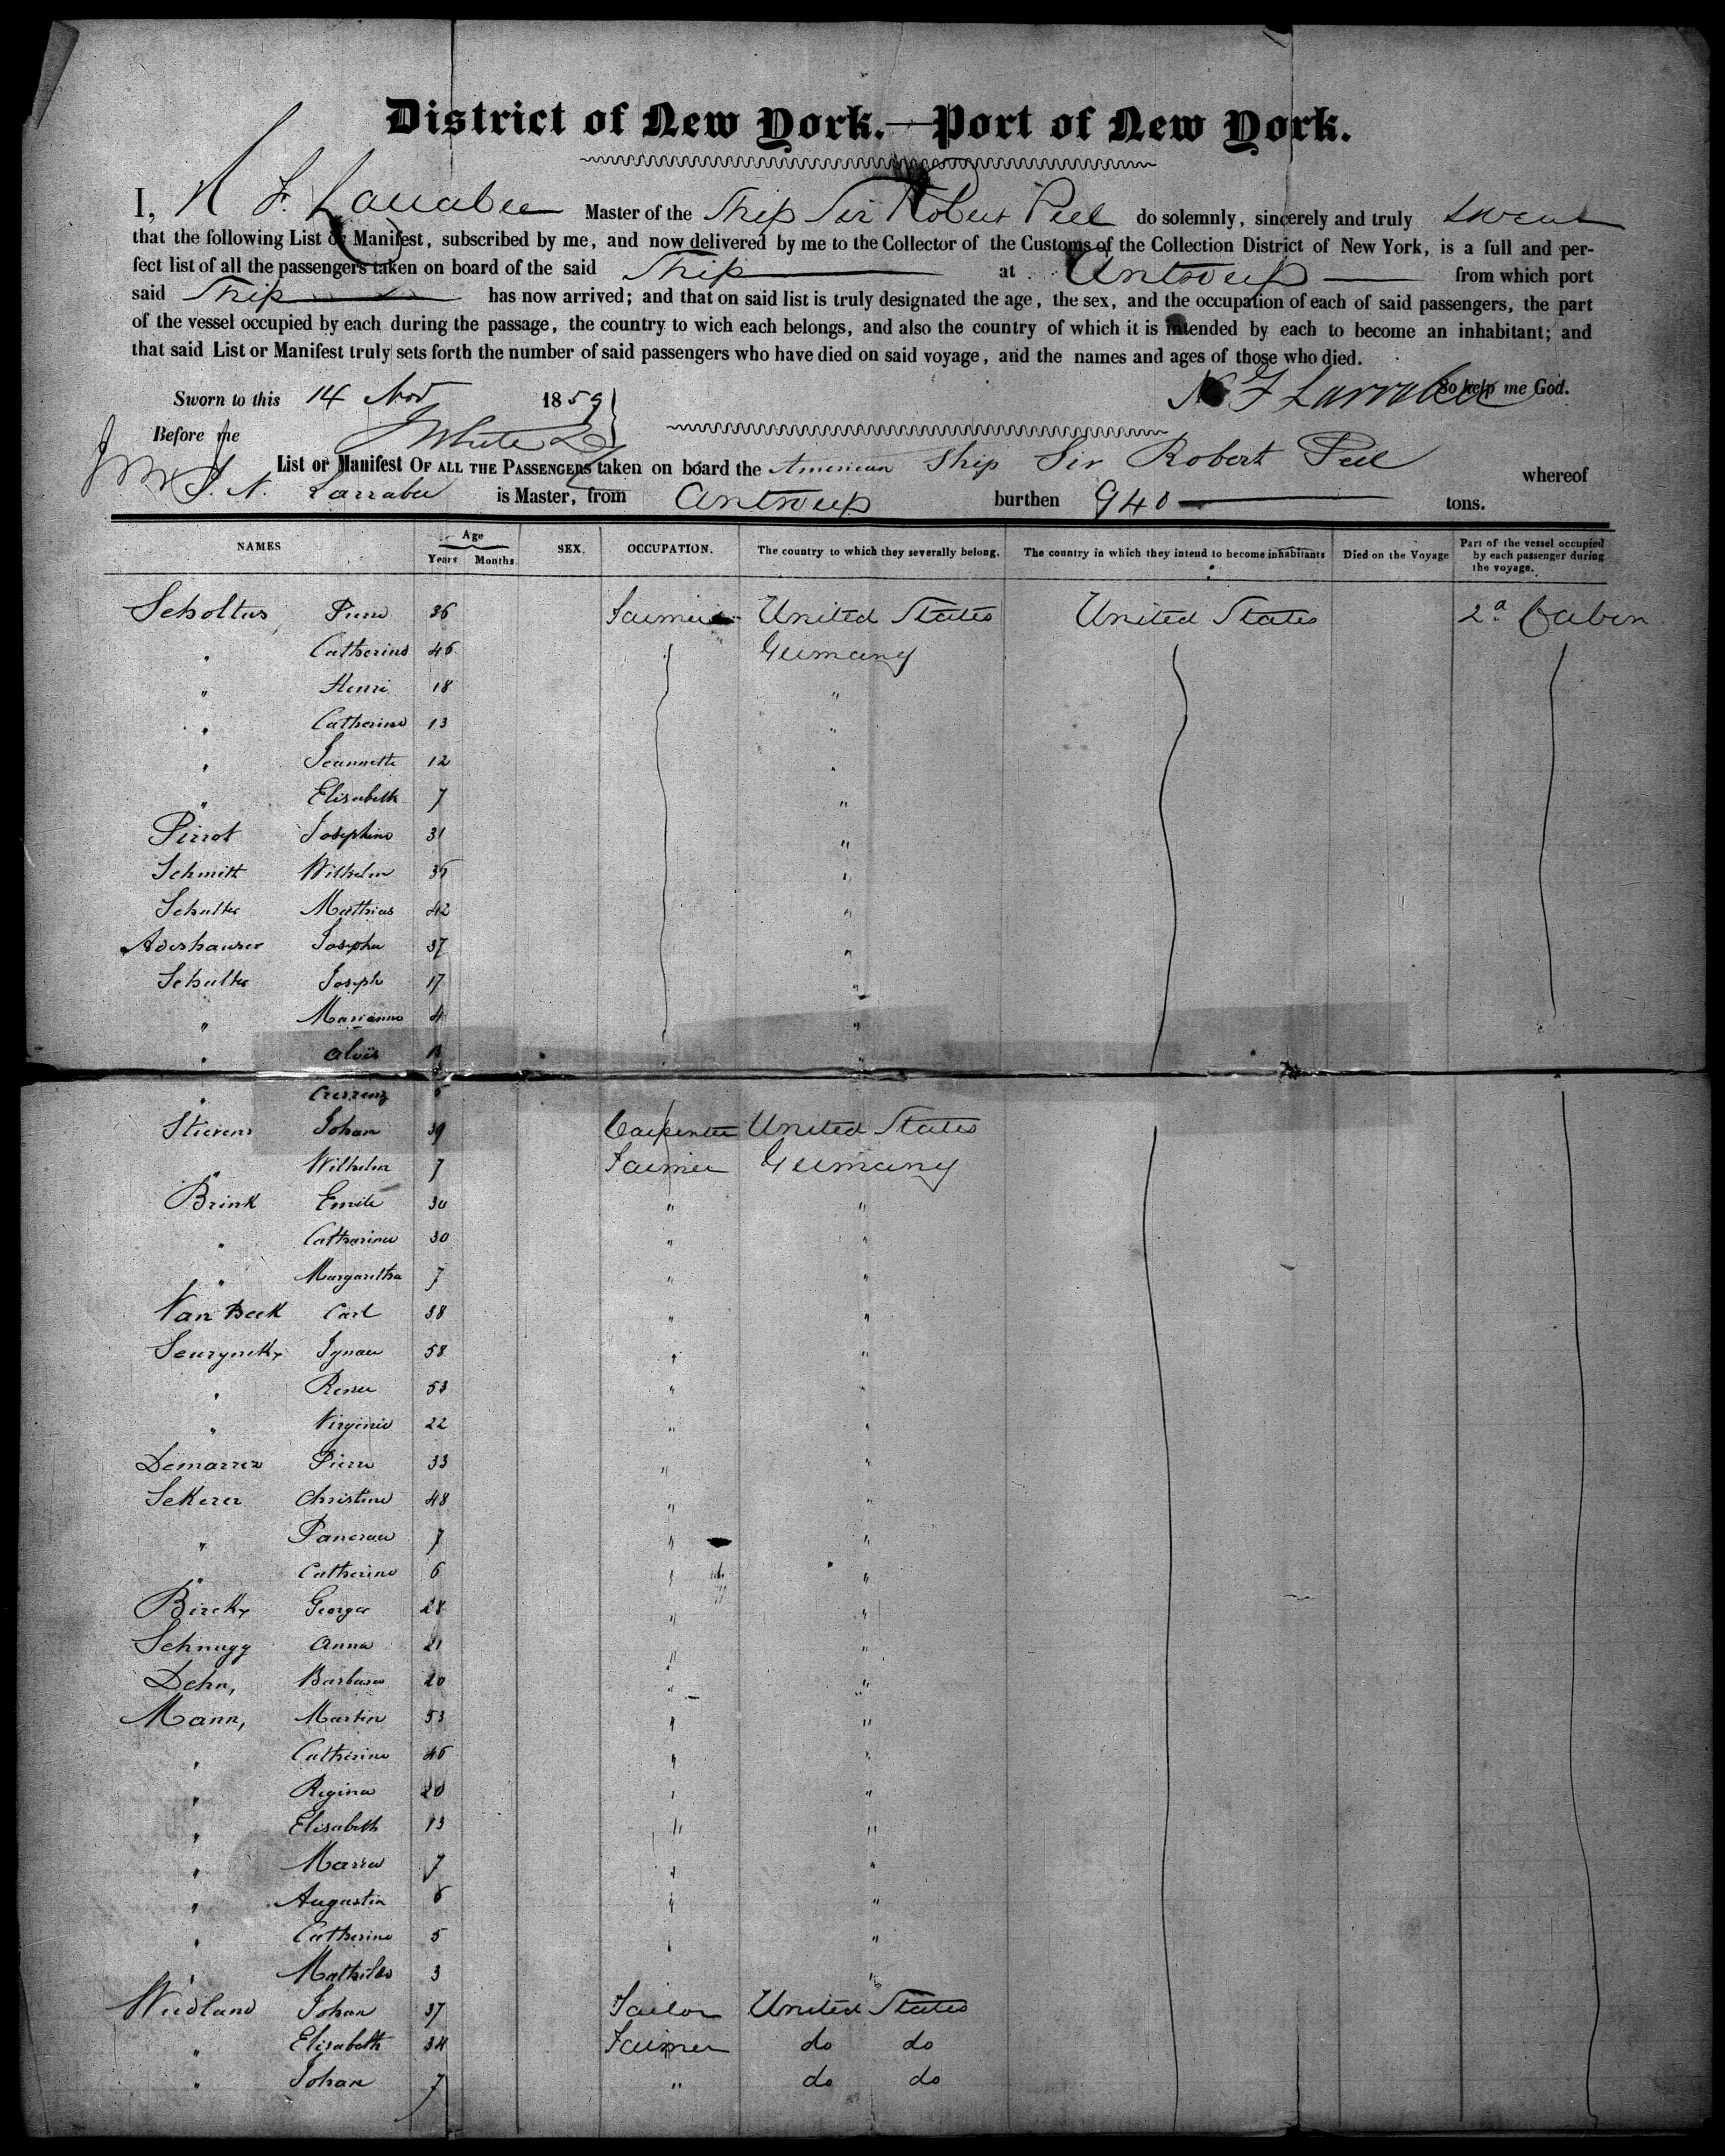 District of New York.—Port of New York.
I, N F. Larrabee Master of the Ship Sir Robert Peel do solemnly, sincerely and truly swear
that the following List or Manifest, subscribed by me, and now delivered by me to the Collector of the Customs of the Collection District of New York, is a full and per-
fect list of all the passengers taken on board of the said Ship at Antwerp from which port
said Ship has now arrived; and that on said list is truly designated the age, the sex, and the occupation of each of said passengers, the part
of the vessel occupied by each during the passage, the country to wich each belongs, and also the country of which it is intended by each to become an inhabitant; and
that said List or Manifest truly sets forth the number of said passengers who have died on said voyage, and the names and ages of those who died.
So help me God.
N F Larrabee
Sworn to this 14 Nov 1859
Before me J White
List or Manifest OF ALL THE PASSENGERS taken on board the American Ship Sir Robert Peel whereof
Larrabee is Master, from Antwerp burthen 940 tons.
NAMES Age Years Months. SEX. OCCUPATION. The country to which they severally belong. The country in which they intend to become inhabitants Died on the Voyage Part of the vessel occupied by each passenger during the voyage.
Scholtus, Pierre 36 Farmer United States United States 2d Cabin
" Catherine 46 Germany
" Henri 18 "
" Catherine 13 "
" Jeannette 12 "
" Elisabeth 7 "
Pirrot Josephine 31 "
Schmitt Wilhelm 36 "
Schulter Mathias 42 "
Josepha 37 "
Schulter Joseph 17 "
" Marianne 4 "
" Alois "
" Crescenz
Stievens Johan 39 Carpenter United States
" Wilhelm 7 Farmer Germany
Brink Emile 30 " "
" Catharina 30 " "
" Margaretha 7 " "
Van Beek Carl 38 " "
Ignace 58 " "
" 53 " "
" Virginie 22 " "
Demarrez Pierre 33 " "
Sekerer Christine 48 " "
" Pancrace 7 " "
" Catherine 6 " "
Birckx Georges 28 " "
Schnugg Anna 21 " "
Dehn, Barbara 20 " "
Mann, Martin 53 " "
" Catherine 46 " "
" Regina 20 " "
" Elisabeth 13 " "
" Maria 7 " "
" Augustin 6 " "
" Catherine 5 " "
" Mathilde 3 "
Wiedland Johan 37 Tailor United States
" Elisabeth 34 Farmer do do
" Johan 7 " do do